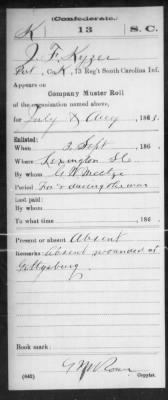 (Confederate.)
K 13 S. C.
J. F. Kyzer
Pvt, Co. K, 13 Reg't South Carolina Inf.
Appears on
Company Muster Roll
of the organization named above,
for July & Aug, 1863.
Enlisted:
When 3 Sept, 186
Where Lexington S.C.
By whom
Period For & during the war
Last paid:
By whom
To what time , 186 .
Present or absent Absent
Remarks: Absent wounded at
Gettysburg
Book mark:
(642) Copyist.